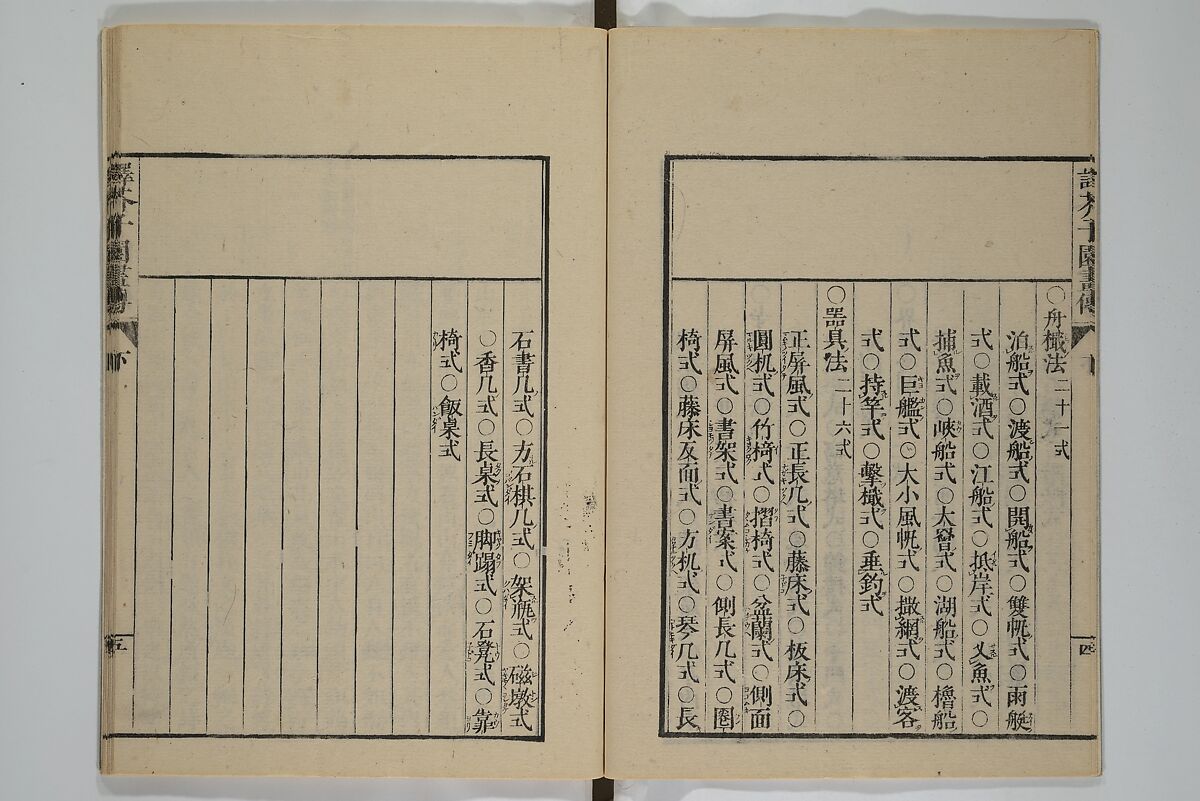 譯芥子園畫傳
四
○舟檝法二十一式
泊船式○渡船式○開船式○雙帆式○雨艇
式○載酒式○江船式○抵岸式○叉魚式○
捕魚式○峽船式○大罾式○湖船式○櫓船
式○巨艦式○大小風帆式○撒網式○渡客
式○持竿式○擊檝式○垂釣式
○器具法二十六式
正屏風式○正長几式○藤床式○板床式○
圓机式○竹椅式○摺椅式○盆蘭式○側面
屏風式○書架式○書案式○側長几式○圈
椅式○藤床反面式○方机式○琴几式○長
石書几式○方石棋几式○架瓶式○磁墩式
○香几式○長桌式○脚蹋式○石凳式○靠
椅式○飯桌式
譯芥子園畫傳
下
五